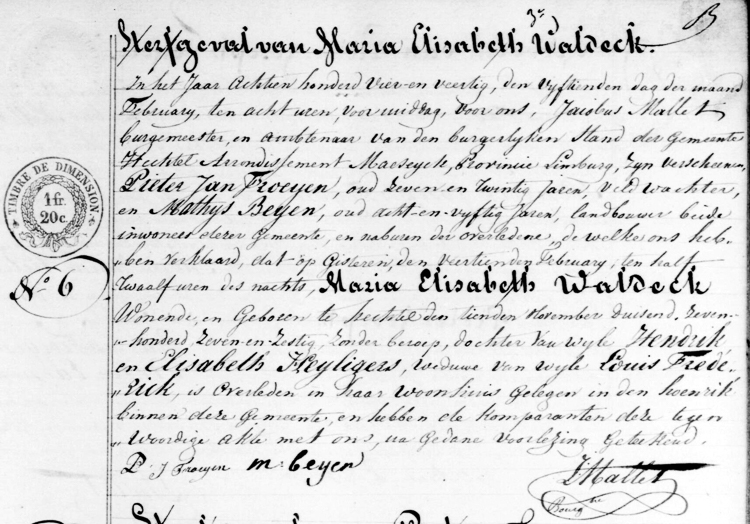 3ʳ
B
Sterfgeval van Maria Elisabeth Waldeck.
In het Jaar achtien honderd vier-en veertig, den vyftienden dag der maand
February, ten acht uren, voormiddag, voor ons, Jacobus Mallet
burgemeester, en ambtenaar van den burgerlyken Stand der Gemeente
Hechtel Arrondissement Maeseyck, Provincie Limburg, zyn verscheenen,
Pieter Jan Troeyen, oud zeven en twintig jaren, veldwachter,
en Mathys Beyen, oud acht-en-vyftig jaren, landbouwer beide
inwoners dezer Gemeente, en naburen der overledene, de welke ons heb-
„ben verklaard, dat op gisteren, den veertienden February, ten half
twaalf uren des nachts, Maria Elisabeth Waldeck
Wonende, en Geboren te hechtel den tienden November duisend zeven-
„honderd zeven-en-zestig, zonder beroep, dochter van wyle Hendrik
en Elisabeth Heyligers, weduwe van wyle Louis Frede-
„rick, is overleden in haar woonhuis gelegen in den hoenrik
binnen deze Gemeente, en hebben de komparanten deze tegen
„woordige akte met ons, na gedane voorlezing getekend.
P. J Troeyen m. beyen
JMallet
Bourgᵗʳᵉ
TIMBRE DE DIMENSION
1 fr.
20 c.
N° 6